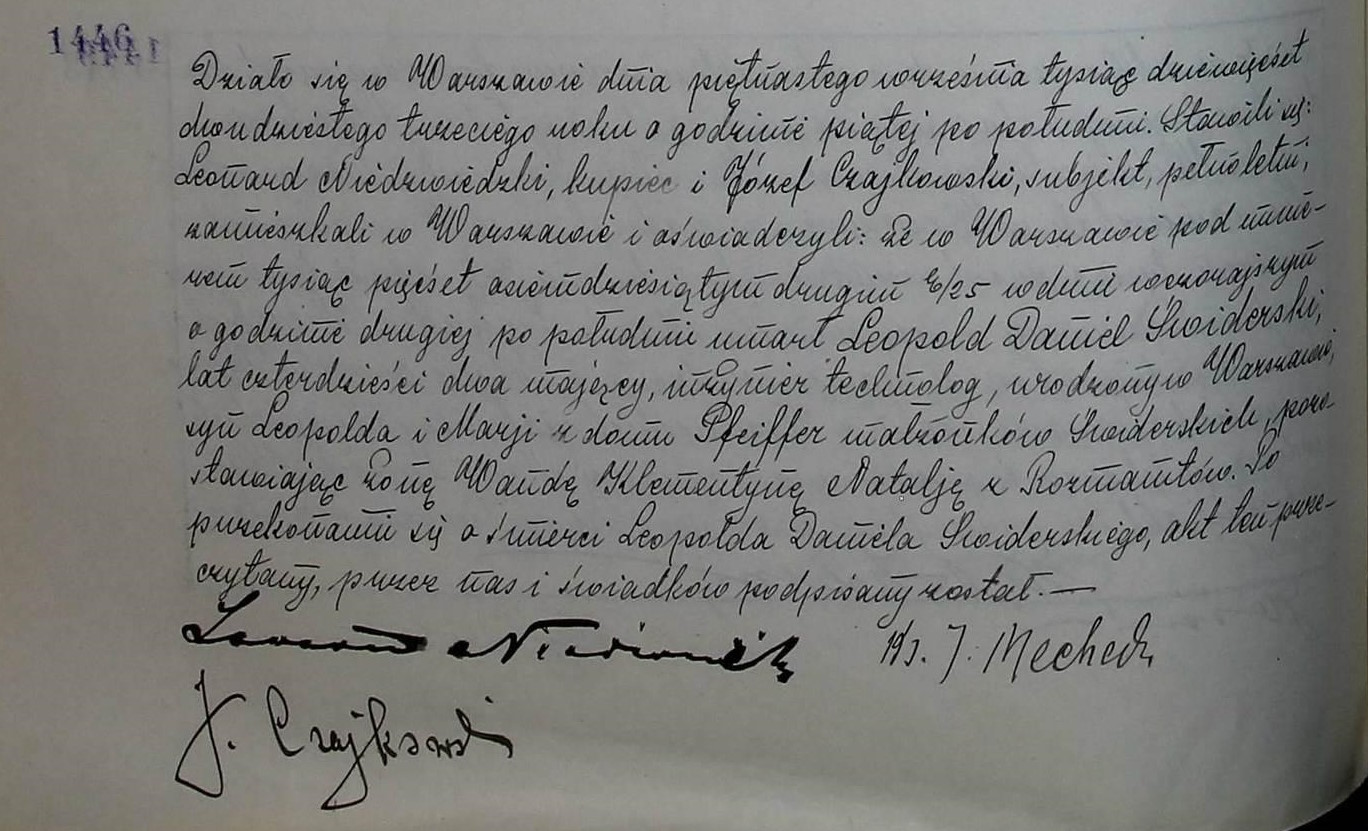 1446
Działo się w Warszawie dnia piętnastego września tysiąc dziewięćset
dwudziestego trzeciego roku o godzinie piątej po południu. Stawili się:
Leonard Niedzwiedzki, kupiec i Józef Czajkowski, subjekt, pełnoletni,
zamieszkali w Warszawie i oświadczyli: że w Warszawie pod nume-
rem tysiąc pięćset osiemdziesiątym drugim 6/25 w dniu wczorajszym
o godzinie drugiej po południu umarł Leopold Daniel Świderski,
lat czterdzieści dwa mający, inżynier technolog, urodzony w Warszawie,
syn Leopolda i Marji z domu Pfeiffer małżonków Świderskich, pozo-
stawiając żonę Wandę Klementynę Natalję z Rozmanitów. Po
przekonaniu się o śmierci Leopolda Daniela Świderskiego, akt ten prze-
czytany, przez nas i świadków podpisany został.—
J. Czajkowski